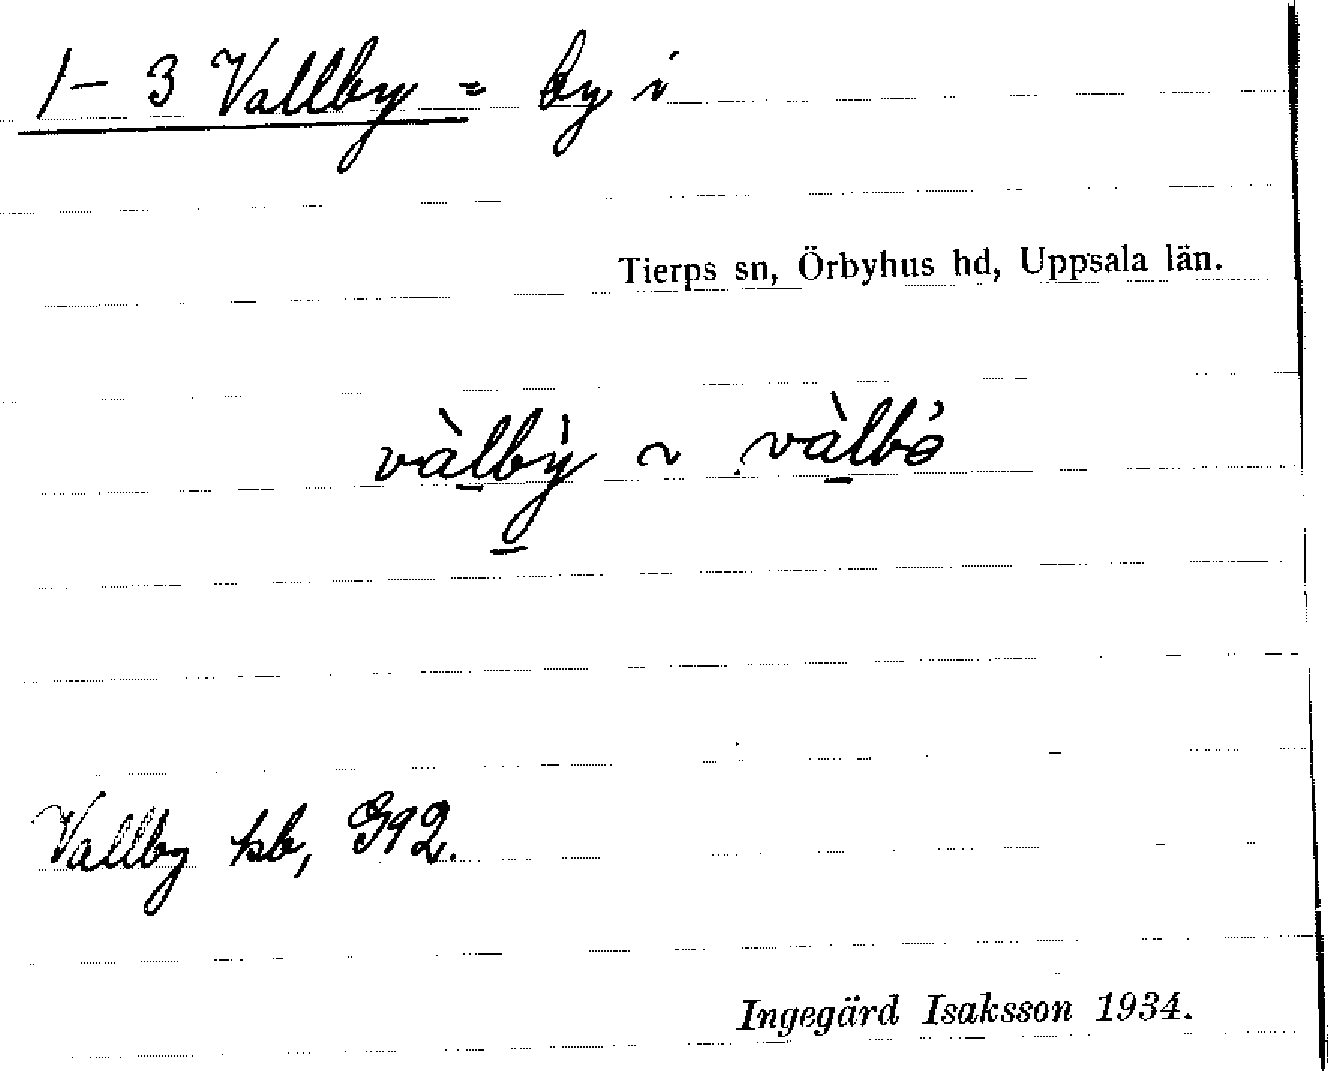 1-3 Vallby = by i
Tierps sn, Örbyhus hd, Uppsala län.
và̱lbỳ̱ ~ và̱lbə́
Vallby kb, G92.
Ingegärd Isaksson 1934.